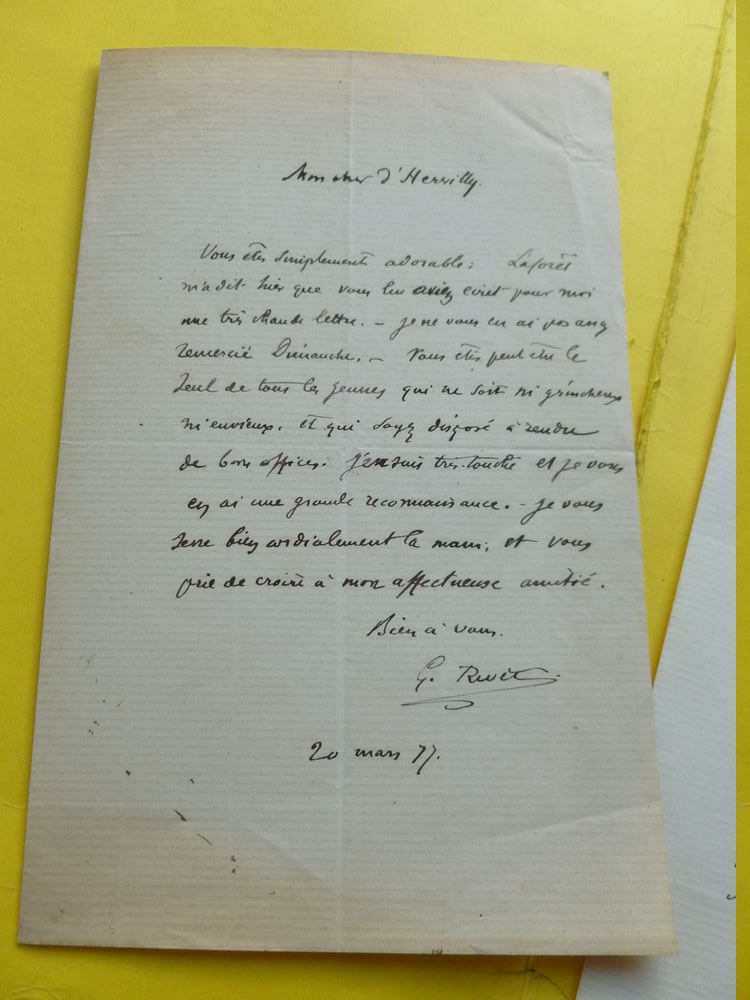 Mon cher d'Hervilly.
Vous êtes simplement adorable: Laforêt
m'a dit hier que vous lui aviez écrit pour moi
une très chaude lettre. - Je ne vous en ai pas assez
remercié Dimanche. - Vous êtes peut être le
seul de tous les jeunes qui ne soit ni grincheux
ni envieux, et qui soyez disposé à rendre
de bons offices. J'en suis très touché et je vous
en ai une grande reconnaissance. - Je vous
serre bien cordialement la main, et vous
prie de croire à mon affectueuse amitié.
Bien à vous.
G. Rivet
20 mars 77.